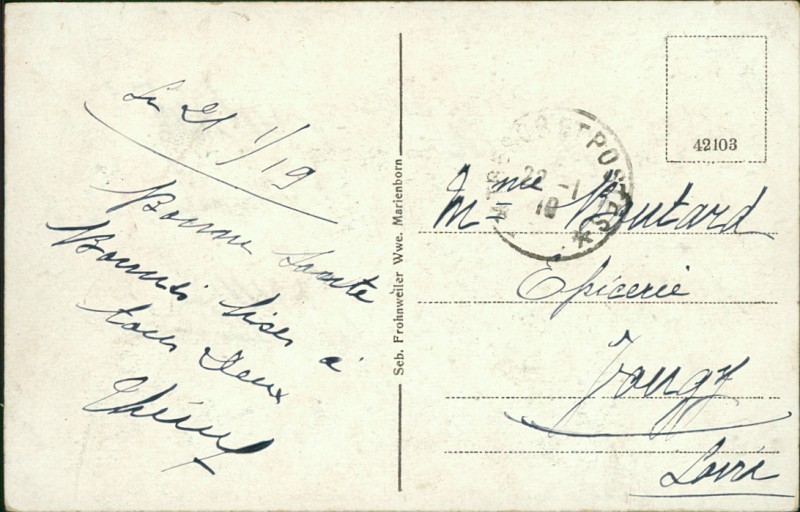 Le 21/1/19
Bonne Santé
Bonnes bises à
tous deux
Seb. Frohnweiler Wwe. Marienborn
TRESOR ET POSTES
22 -1
42103
Mme Boutard
Épicerie
Vougy
Loire